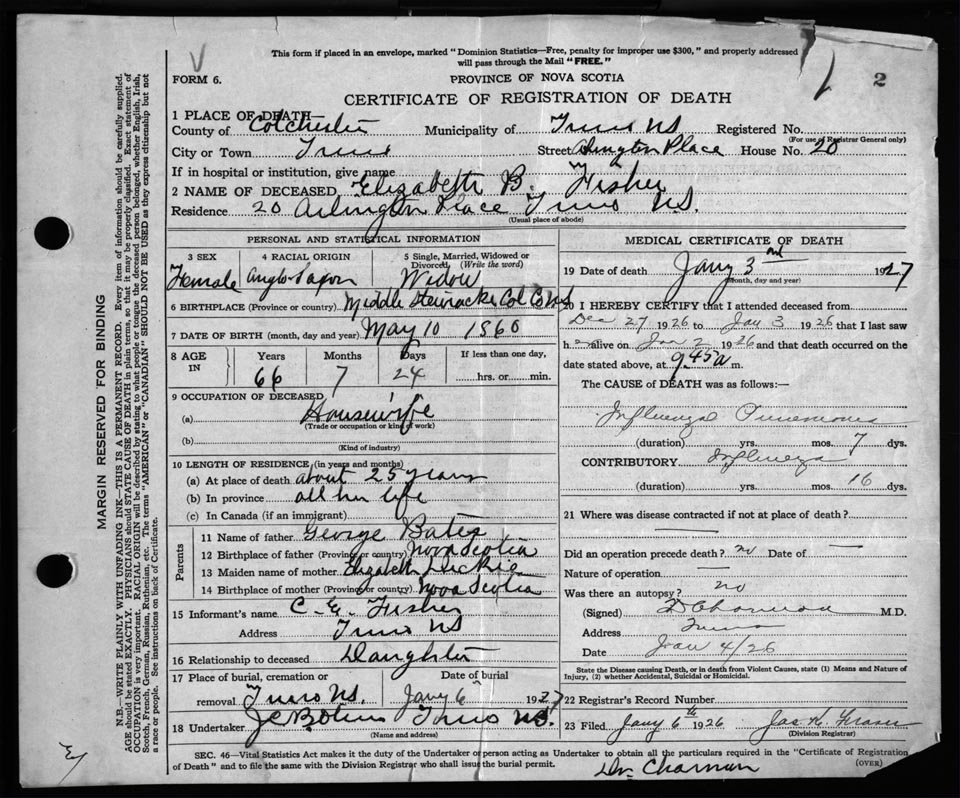 This form if placed in an envelope, marked "Dominion Statistics—Free, penalty for improper use $300," and properly addressed
will pass through the Mail "FREE."
FORM 6.
PROVINCE OF NOVA SCOTIA
2
CERTIFICATE OF REGISTRATION OF DEATH
1 PLACE OF DEATH—
County of Colchester Municipality of Truro NS Registered No.
(For use of Registrar General only)
City or Town Truro Street Arlington Place House No. 20
If in hospital or institution, give name
2 NAME OF DECEASED Elizabeth B. Fisher
Residence 20 Arlington Place Truro N.S.
(Usual place of abode)
PERSONAL AND STATISTICAL INFORMATION
3 SEX 4 RACIAL ORIGIN 5 Single, Married, Widowed or Divorced, (Write the word)
Female Anglo Saxon Widow
6 BIRTHPLACE (Province or country) Middle Stewiacke Col Co NS
7 DATE OF BIRTH (month, day and year) May 10 1860
8 AGE IN Years Months Days If less than one day,
66 7 24 hrs. or min.
9 OCCUPATION OF DECEASED
(a) Housewife
(Trade or occupation or kind of work)
(b)
(Kind of industry)
10 LENGTH OF RESIDENCE (in years and months)
(a) At place of death about 25 years
(b) In province all her life
(c) In Canada (if an immigrant)
Parents
11 Name of father George Bates
12 Birthplace of father (Province or country) Nova Scotia
13 Maiden name of mother Elizabeth Dickie
14 Birthplace of mother (Province or country) Nova Scotia
15 Informant's name C. E. Fisher
Address Truro NS
16 Relationship to deceased Daughter
17 Place of burial, cremation or removal Truro NS. Date of burial Jany 6 1927
18 Undertaker Truro NS.
(Name and address)
MEDICAL CERTIFICATE OF DEATH
19 Date of death Jany 3rd 1927
(Month, day and year)
20 I HEREBY CERTIFY that I attended deceased from
Dec 27 1926 to Jan 3 1926 that I last saw
h er alive on Jan 2 1926 and that death occurred on the
date stated above, at 9 45 a m.
The CAUSE of DEATH was as follows:—
Influenzal Pneumonia
(duration) yrs. mos. 7 dys.
CONTRIBUTORY Influenza
(duration) yrs. mos. 16 dys.
21 Where was disease contracted if not at place of death?
Did an operation precede death? no Date of —
Nature of operation —
Was there an autopsy? no
(Signed) M.D.
Address Truro
Date Jan 4/26
State the Disease causing Death, or in death from Violent Causes, state (1) Means and Nature of
Injury, (2) whether Accidental, Suicidal or Homicidal.
22 Registrar's Record Number
23 Filed Jany 6th 1926 Jas. H.
(Division Registrar)
SEC. 46—Vital Statistics Act makes it the duty of the Undertaker or person acting as Undertaker to obtain all the particulars required in the "Certificate of Registration
of Death" and to file the same with the Division Registrar who shall issue the burial permit.
(OVER)
Dr.
MARGIN RESERVED FOR BINDING
N.B.—WRITE PLAINLY WITH UNFADING INK—THIS IS A PERMANENT RECORD. Every item of information should be carefully supplied.
AGE should be stated EXACTLY. PHYSICIANS should STATE CAUSE OF DEATH in plain terms, so that it may be properly classified. Exact statement of
OCCUPATION is very important. RACIAL ORIGIN will be described by stating to what people or tongue the deceased person belonged, whether English, Irish,
Scotch, French, German, Russian, Ruthenian, etc. The terms "AMERICAN" or "CANADIAN" SHOULD NOT BE USED as they express citizenship but not
a race or people. See instructions on back of Certificate.